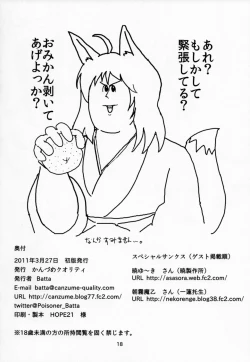 あれ？
もしかして
緊張してる？
おみかん剥いて
あげよっか？
なんかすみません…。
奥付
2011年3月27日　初版発行
発行　かんづめクオリティ
発行者　Batta
E-mail batta@canzume-quality.com
URL http://canzume.blog77.fc2.com/
twitter@Poisoner_Batta
印刷・製本　HOPE21　様
スペシャルサンクス（ゲスト掲載順）
暁ゆ～き　さん（暁製作所）
URL http://asasora.web.fc2.com/
朝霧魔乙　さん（一蓮托生）
URL http://nekorenge.blog38.fc2.com/
※18歳未満の方の所持閲覧を固く禁じます。
18